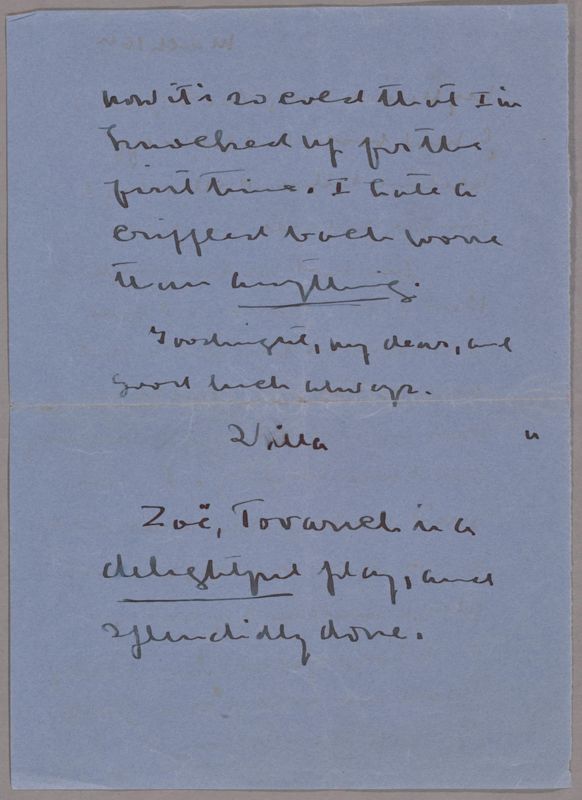 now it's so cold that I'm
knocked up for the
first time. I hate a
crippled back worse
than anything.
Goodnight, my dear, and
good luck always.
Willa
Zoë, Tovarich is a
delightful play, and
splendidly done.